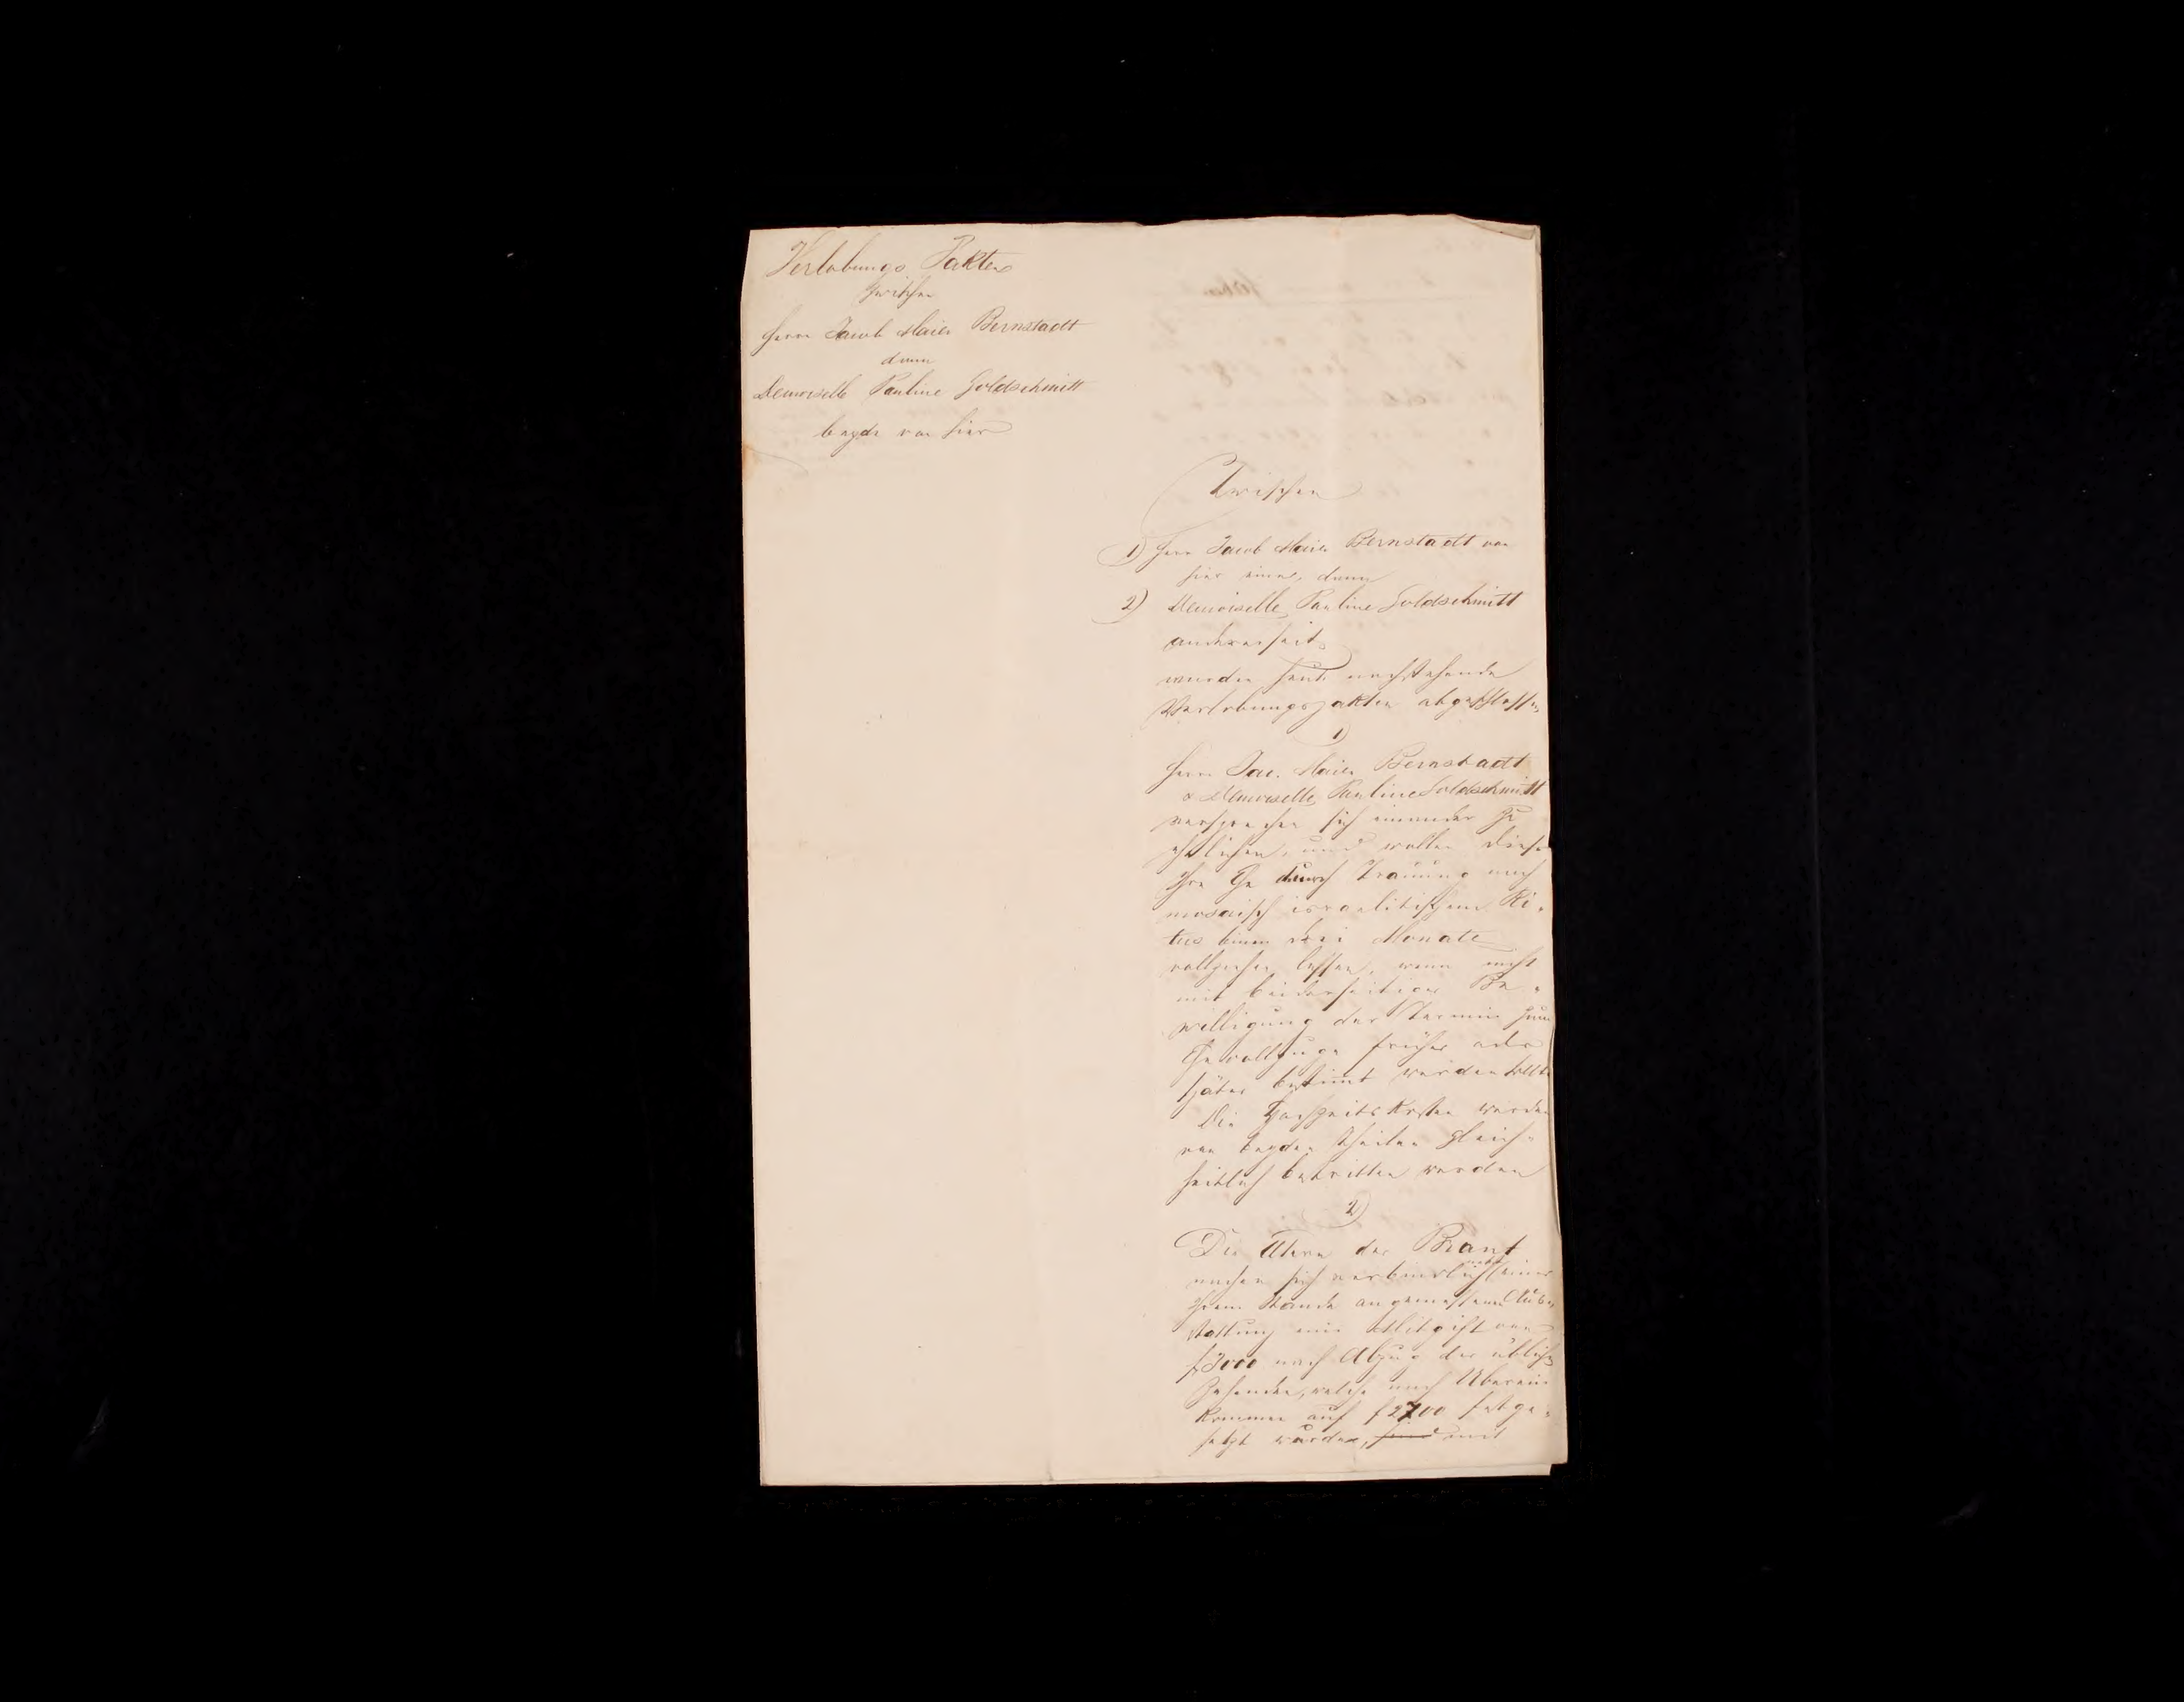 Verlobungs Pakten
zwischen
Herrn Jacob Maier Bernstadt
dann
Demoiselle Pauline Goldschmitt
beyde von hier
Zwischen
1) Herrn Jacob Maier Bernstadt von
hier einer, dann
2) Demoiselle Pauline Goldschmitt
andererseits
wurden heute nachstehende
Verlobungspakten abgeschlossen
1)
Herr Jac. Maier Bernstadt
& Demoiselle Pauline Goldschmitt
versprechen sich einander zu
ehelichen, und wollen diese
Ihre Ehe durch Trauung nach
mosaisch israelitischem Ri-
tus binnen drei Monate
vollziehen lassen, wenn nicht
mit beiderseitiger Be-
willigung der Termin zum
Ehevollzuge früher oder
später bestimmt werden sollte
Die Hochzeits Kosten werden
von beyden Theilen gleich-
heitlich bestritten werden
2)
Die Ältern der Braut
machen sich verbindlich nebst einer
Ihrem Stande angemessenen Aus-
stattung eine Mitgift von
f 3000 nach Abzug der üblichen
Zehenden, welche nach Überein
kommen auf f 2700 festge-
setzt wurden, mit